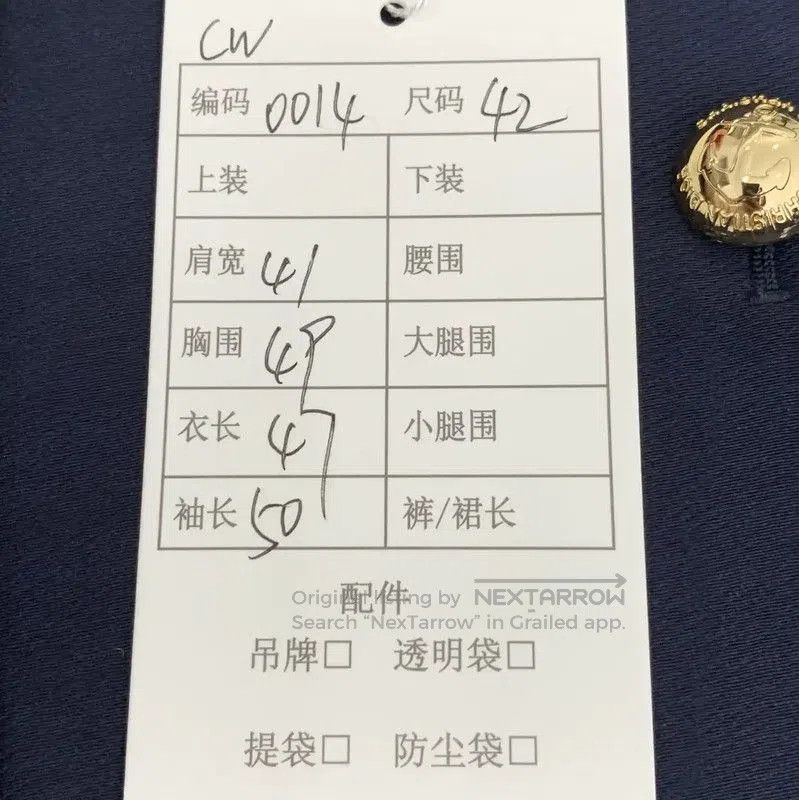 CW
编码 0014 尺码 42
上装 下装
肩宽 41 腰围
胸围 49 大腿围
衣长 47 小腿围
袖长 50 裤/裙长
配件
Original listing by NEXTARROW
Search "NexTarrow" in Grailed app.
吊牌□ 透明袋□
提袋□ 防尘袋□
CHRISTIAN DIOR